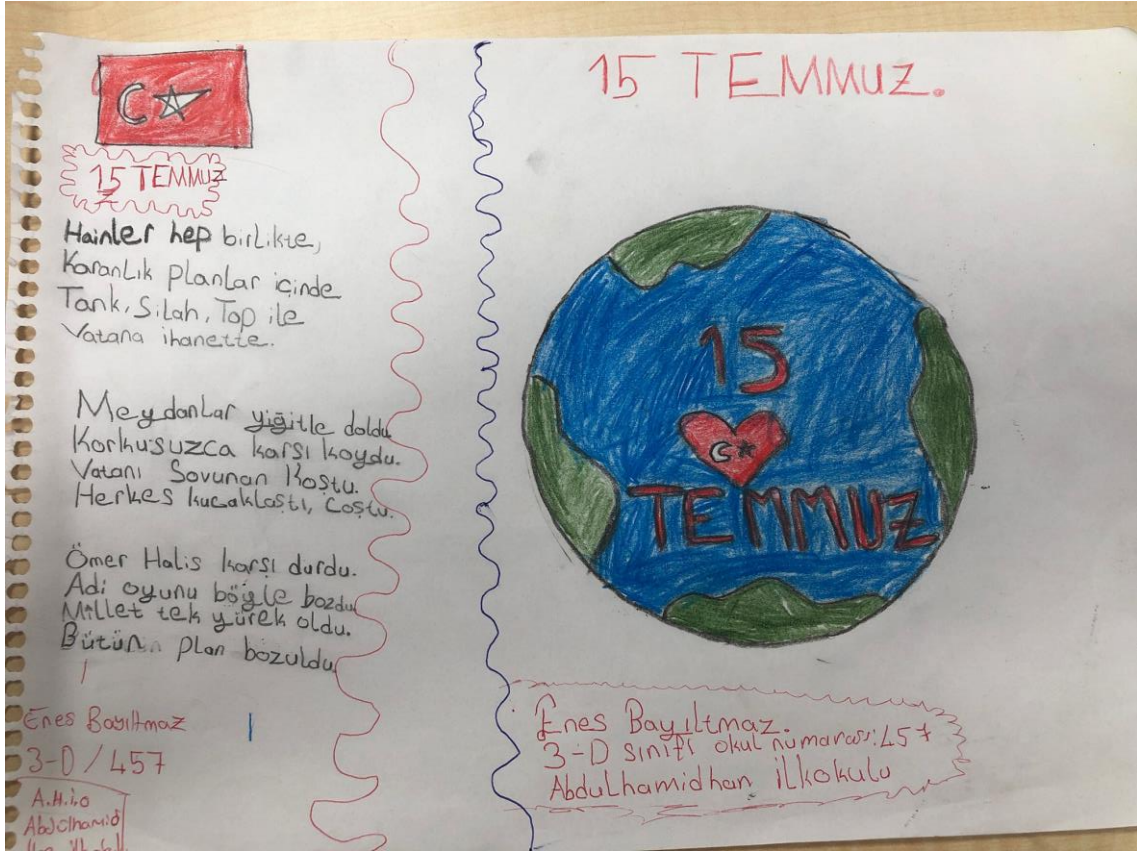 15 TEMMUZ
Hainler hep birlikte,
Karanlık planlar içinde
Tank, Silah, Top ile
Vatana ihanette.
Meydanlar yiğitle doldu
Korkusuzca karşı koydu.
Vatanı Sovunan Koştu.
Herkes kucaklaştı, Coştu.
Ömer Halis karşı durdu.
Adi oyunu böyle bozdu
Millet tek yürek oldu.
Bütün plan bozuldu
Enes Bayıltmaz
3-D / 457
A.H.i.o
Abdülhamid
15 TEMMUZ.
15
TEMMUZ
Enes Bayıltmaz.
3-D sınıfı okul numarası: 457
Abdulhamidhan ilkokulu